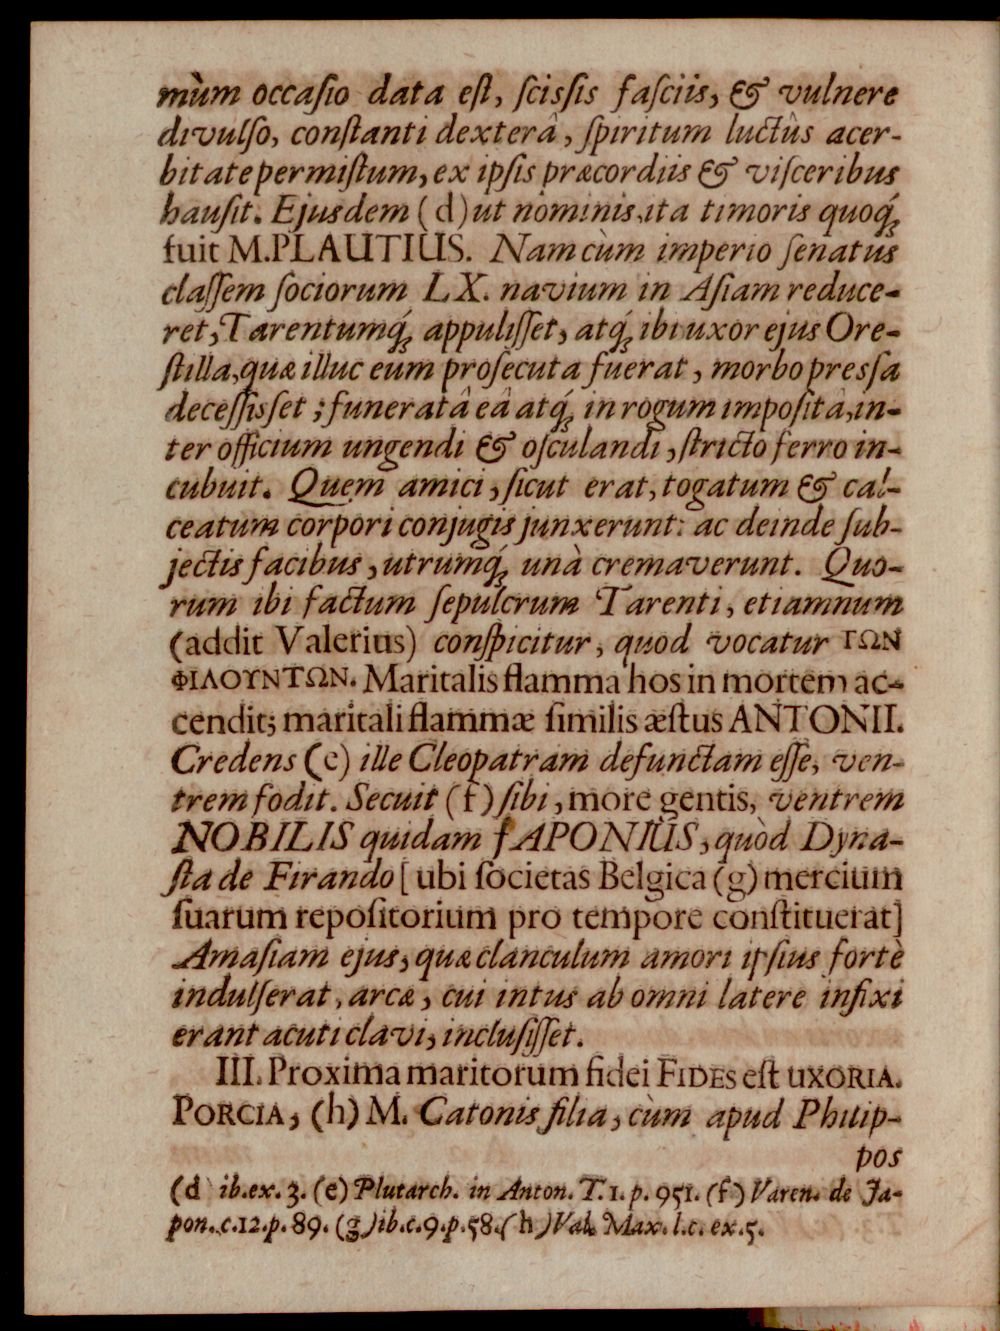 mùm occaſio data eſt, ſcisſis faſciis, & vulnere
divulſo, conſtanti dexterâ, ſpiritum luctûs acer-
bitate permiſtum, ex ipſis præcordiis & viſceribus
hauſit. Ejusdem (d) ut nominis, ita timoris quoq́;
fuit M. PLAUTIUS. Nam cùm imperio ſenatus
claſſem ſociorum LX. navium in Aſiam reduce-
ret, Tarentumq́; appuliſſet, atq́; ibi uxor ejus Ore-
ſtilla, quæ illuc eum proſecuta fuerat, morbo presſa
deceſſisſet; funeratâ eâ atq́; in rogum impoſitâ, in-
ter officium ungendi & oſculandi, ſtricto ferro in-
cubuit. Quem amici, ſicut erat, togatum & cal-
ceatum corpori conjugis junxerunt: ac deinde ſub-
jectis facibus, utrumq́; unà cremaverunt. Quo-
rum ibi factum ſepulcrum Tarenti, etiamnum
(addit Valerius) conſpicitur, quod vocatur ΤΩΝ
ΦΙΛΟΥΝΤΩΝ. Maritalis flamma hos in mortem ac-
cendit; maritali flammæ ſimilis æſtus ANTONII.
Credens (e) ille Cleopatram defunctam eſſe, ven-
trem fodit. Secuit (f) ſibi, more gentis, ventrem
NOBILIS quidam JAPONIUS, quòd Dyna-
ſta de Firando [ubi ſocietas Belgica (g) mercium
ſuarum repoſitorium pro tempore conſtituerat]
Amaſiam ejus, quæ clanculum amori ipſius fortè
indulſerat, arcæ, cui intus ab omni latere infixi
erant acuti clavi, incluſiſſet.
III. Proxima maritorum fidei FIDES eſt UXORIA.
PORCIA, (h) M. Catonis filia, cùm apud Philip-
pos
(d ib. ex. 3. (e) Plutarch. in Anton. T. 1. p. 951. (f) Varen. de Ja-
pon. c. 12. p. 89. (g) ib. c. 9. p. 58. (h) Val. Max. l. c. ex. 5.